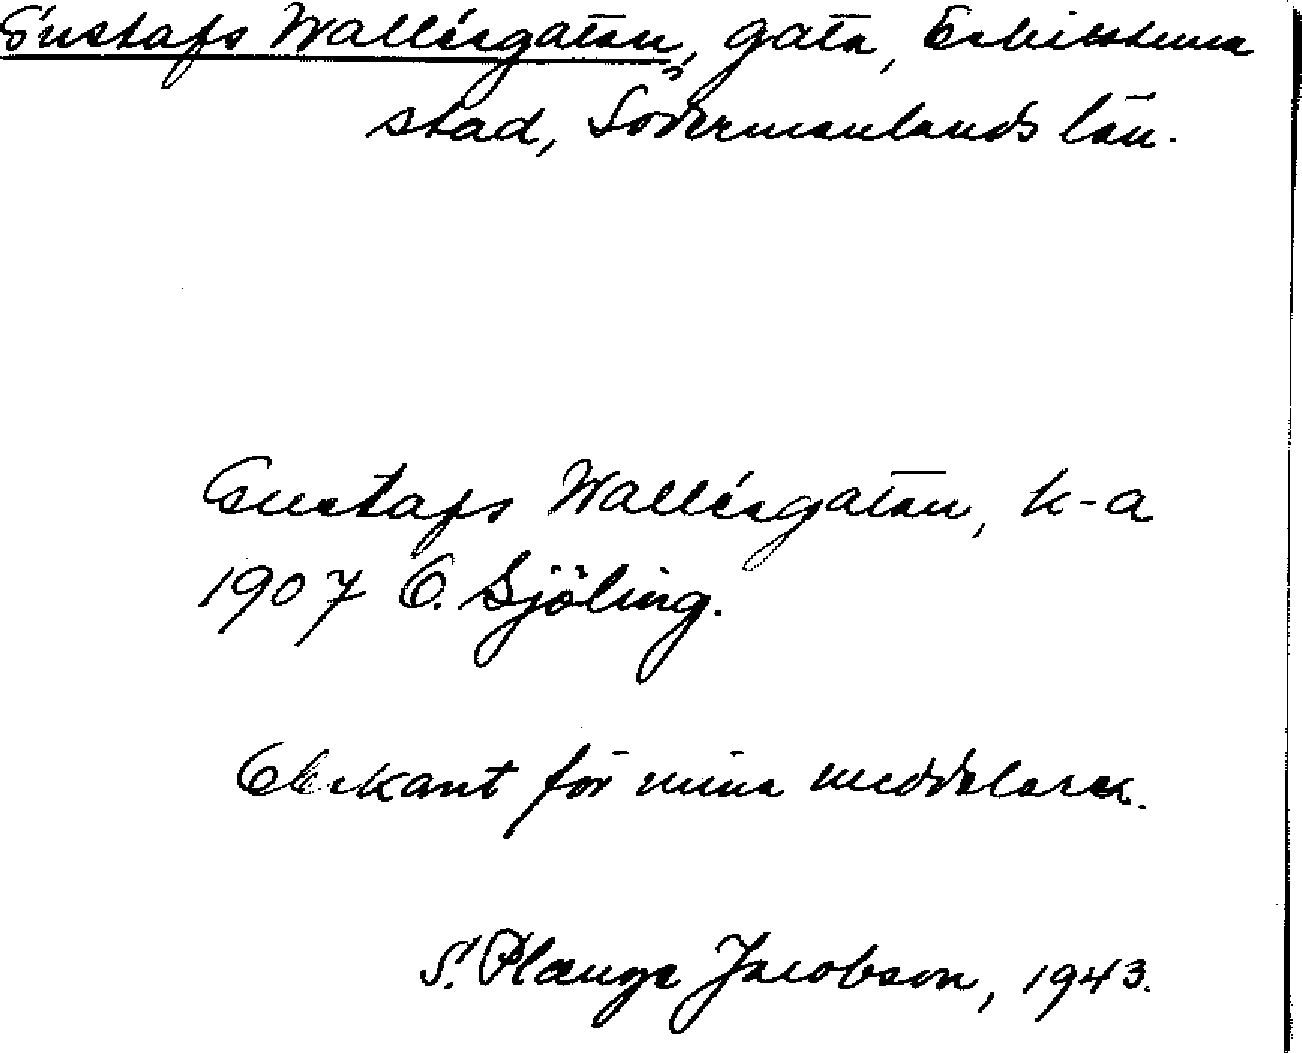 Gustafs Walléngatan, gata, Eskilstuna
stad, Södermanlands län.
Gustafs Walléngatan, k-a
1907 O. Sjöling.
Obekant för mina meddelare.
S. Plange Jacobson, 1943.